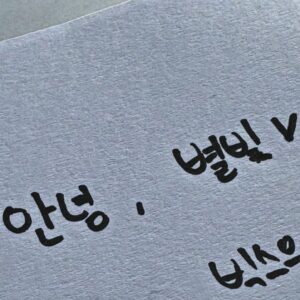 안녕, 별빛
빅스의